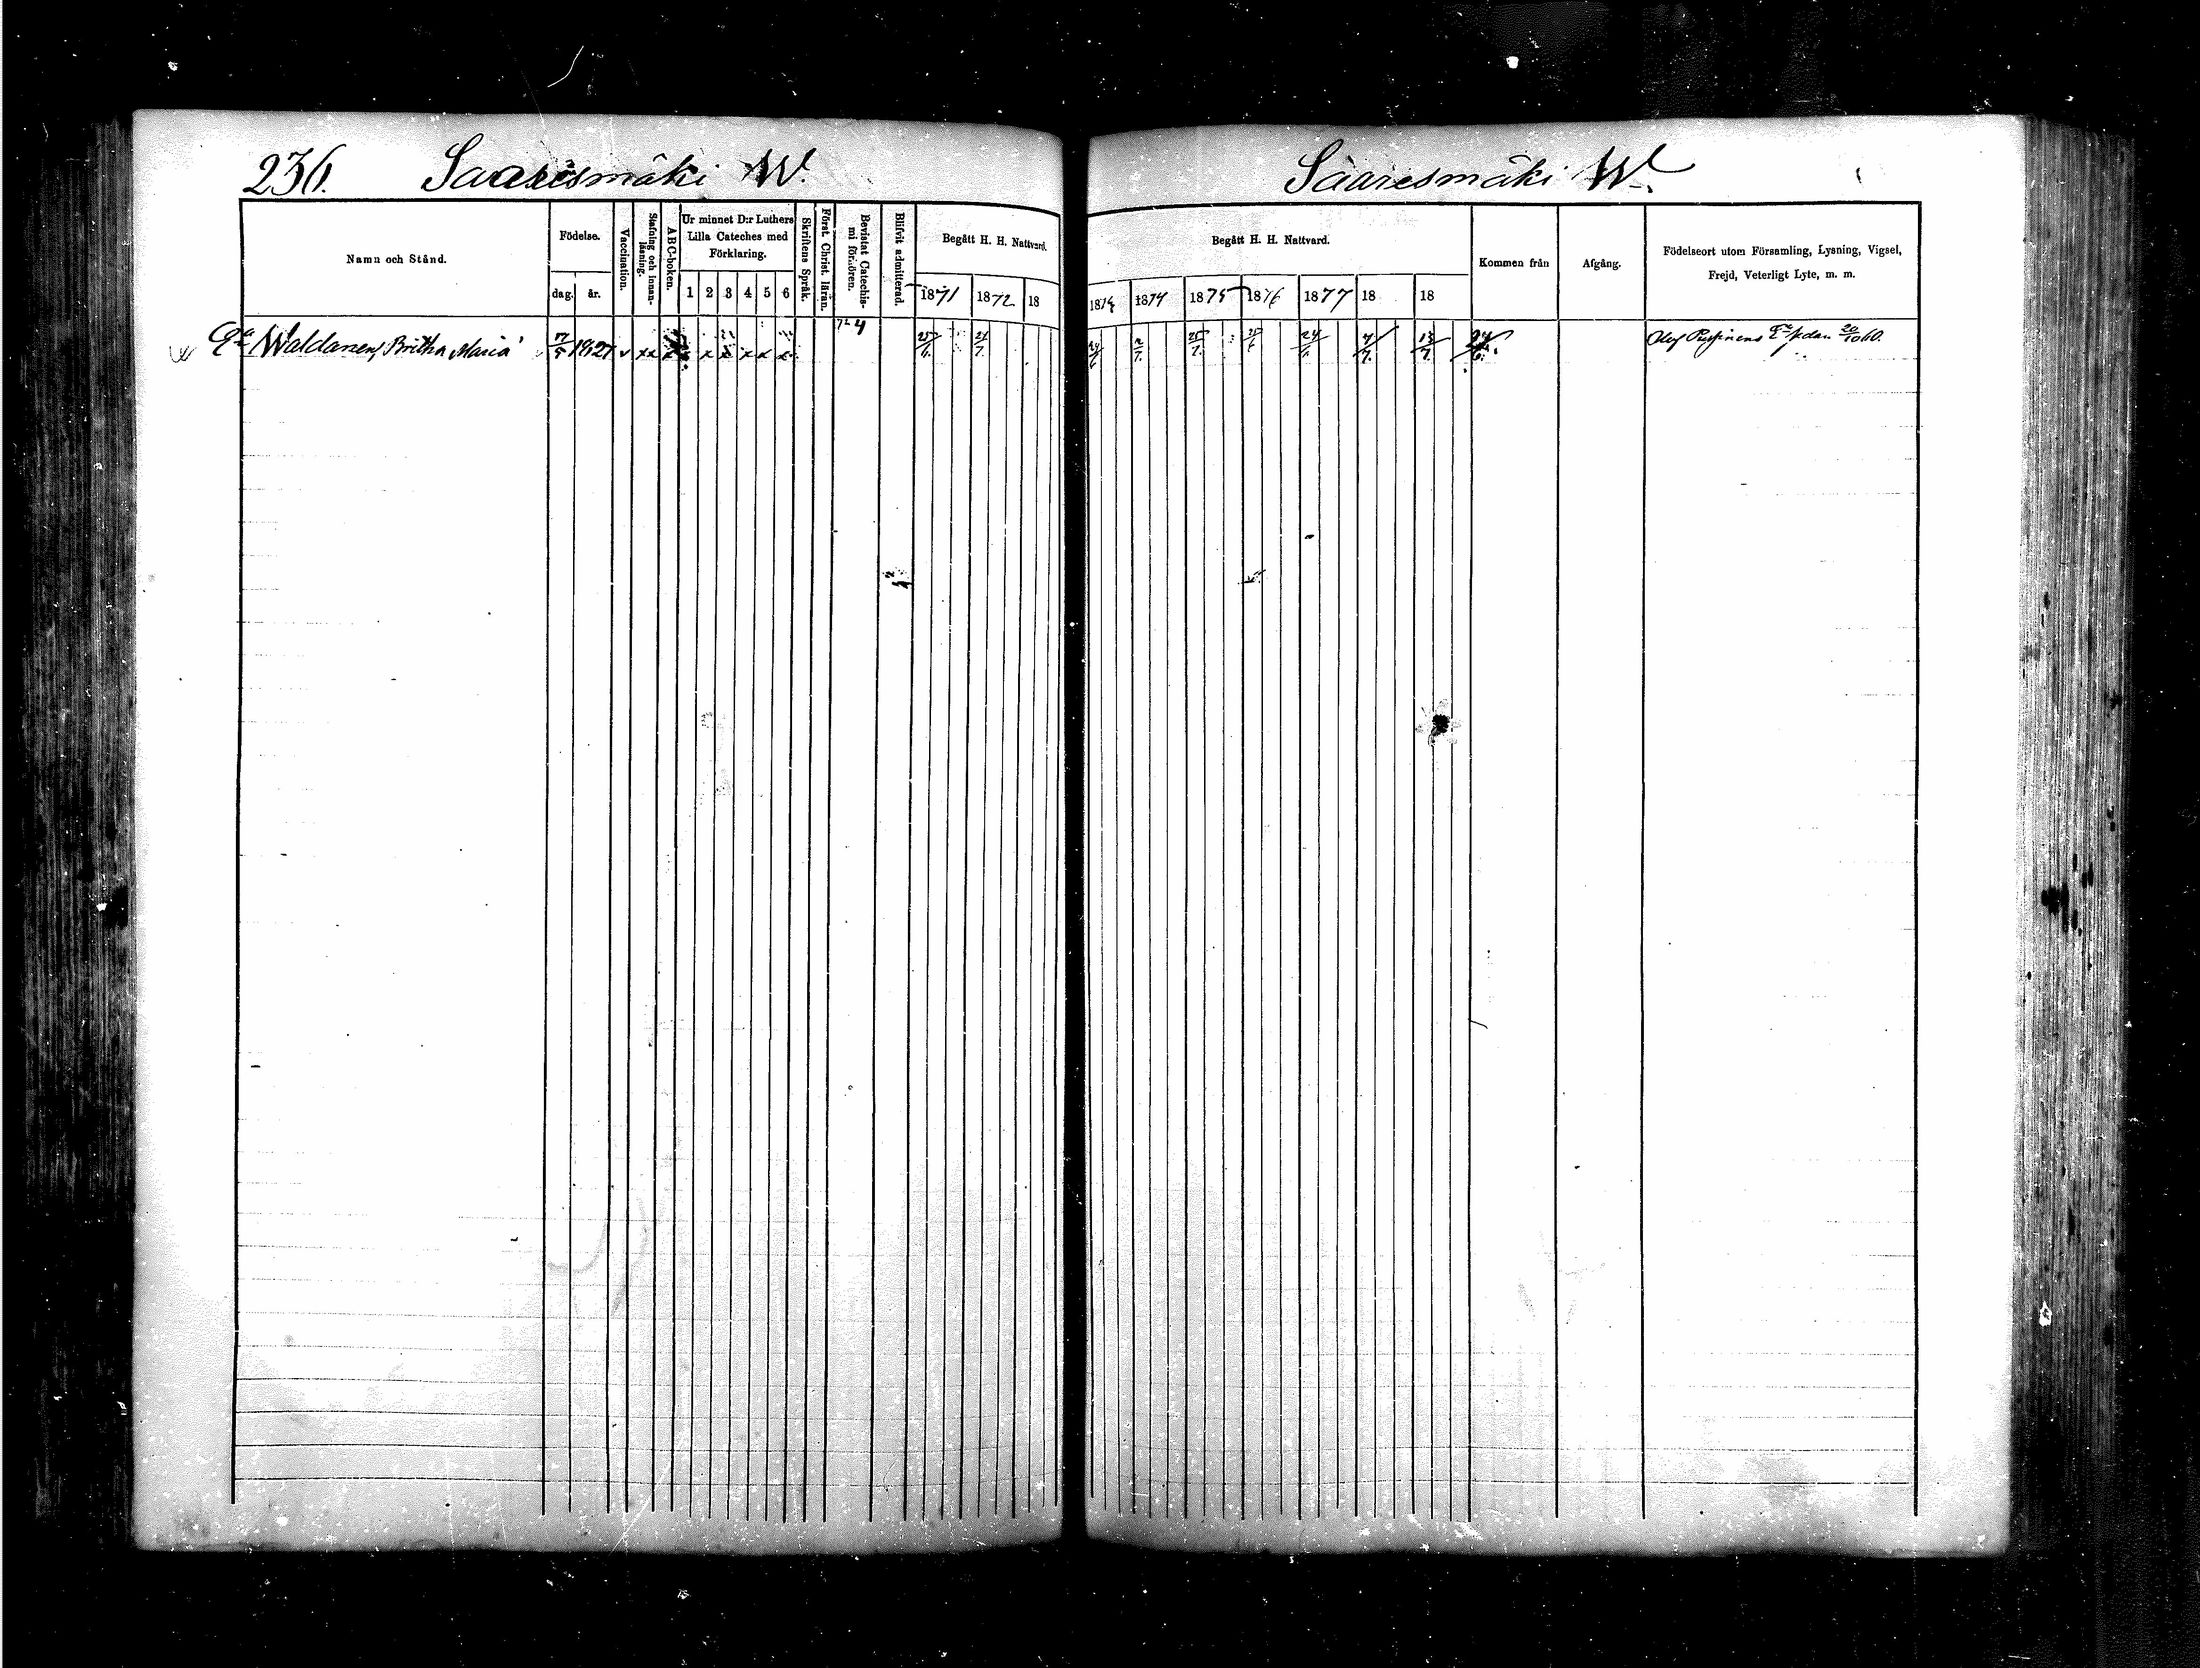 236. Saarismäki W.
Namn och Stånd.
Födelse.
dag. år.
Vaccination.
Stafning och innanläsning.
ABC-boken.
Ur minnet D:r Luthers
Lilla Cateches med
Förklaring.
1 2 3 4 5 6
Skriftens Språk.
Först. Christ. läran.
Bevistat Catechismi förhören.
Blifvit admitterad.
Begått H. H. Nattvard.
1871 1872 18
Ea Waldanen, Britha Maria 1827 v xx x x x x x x
72 4
25/6. 21/7.
Saaresmäki W.
Begått H. H. Nattvard.
1873 1874 1875 1876 1877 18 18
Kommen från
Afgång.
Födelseort utom Församling, Lysning, Vigsel,
Frejd, Veterligt Lyte, m. m.
24/6. 24/6. 7/7. 13/7.
Olof 20/10 60.